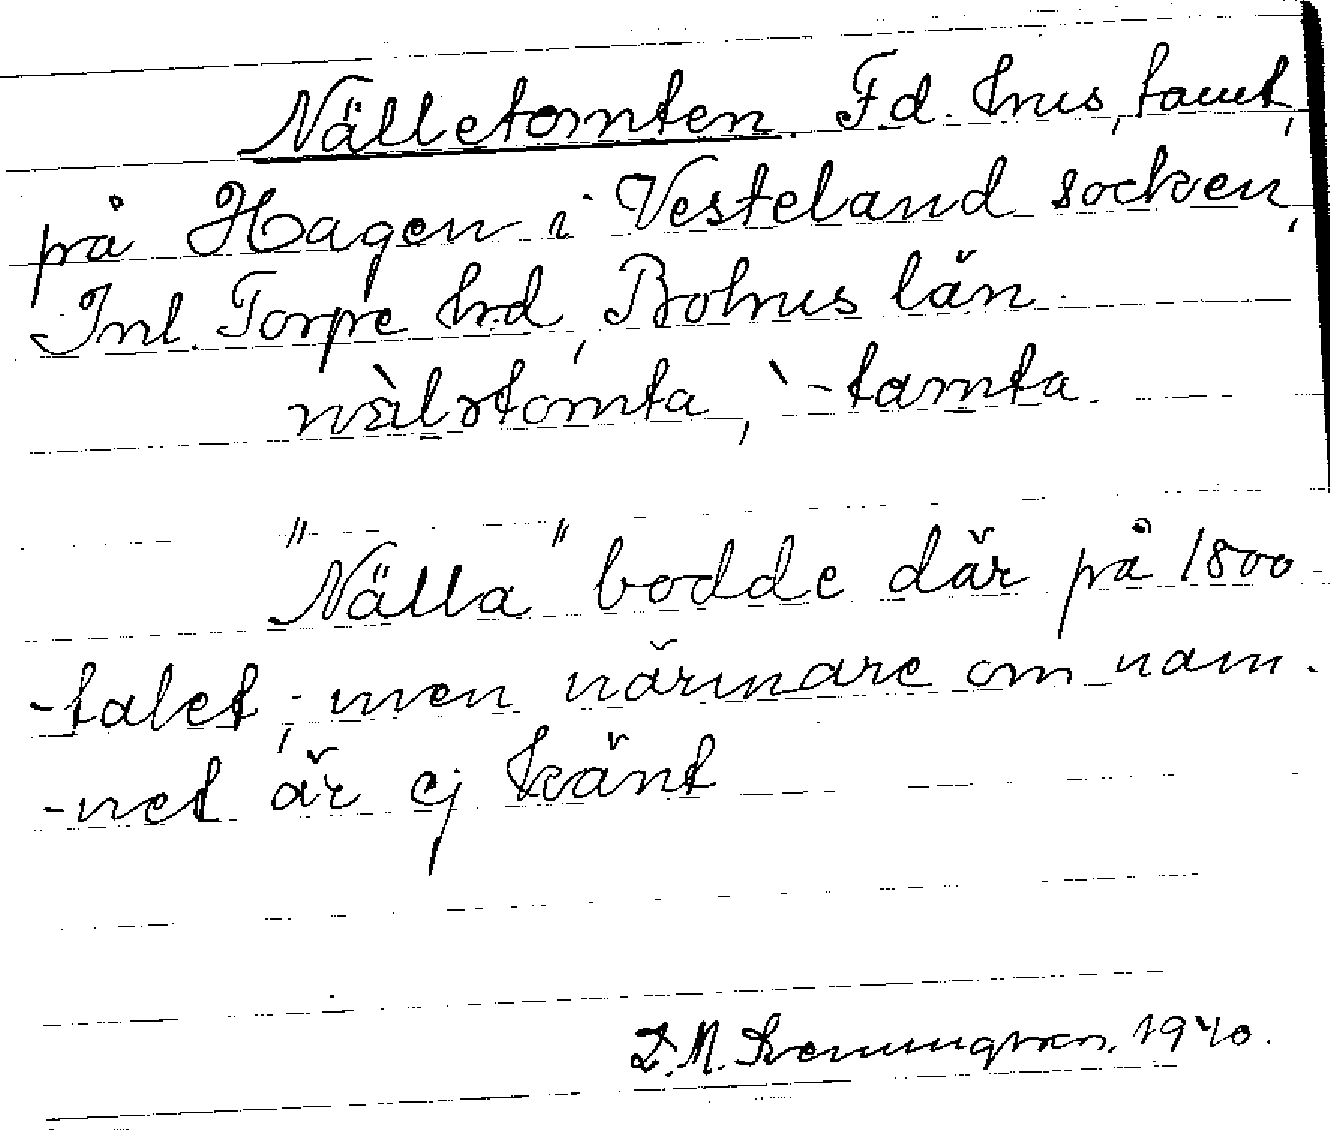 Nälletomten. Fd. hus, tomt,
på Hagen i Vesteland socken,
Inl. Torpe hrd, Bohus län.
nälətomta, `-tamta.
"Nälla" bodde där på 1800
-talet; men närmare om nam-
-net är ej känt
1940.